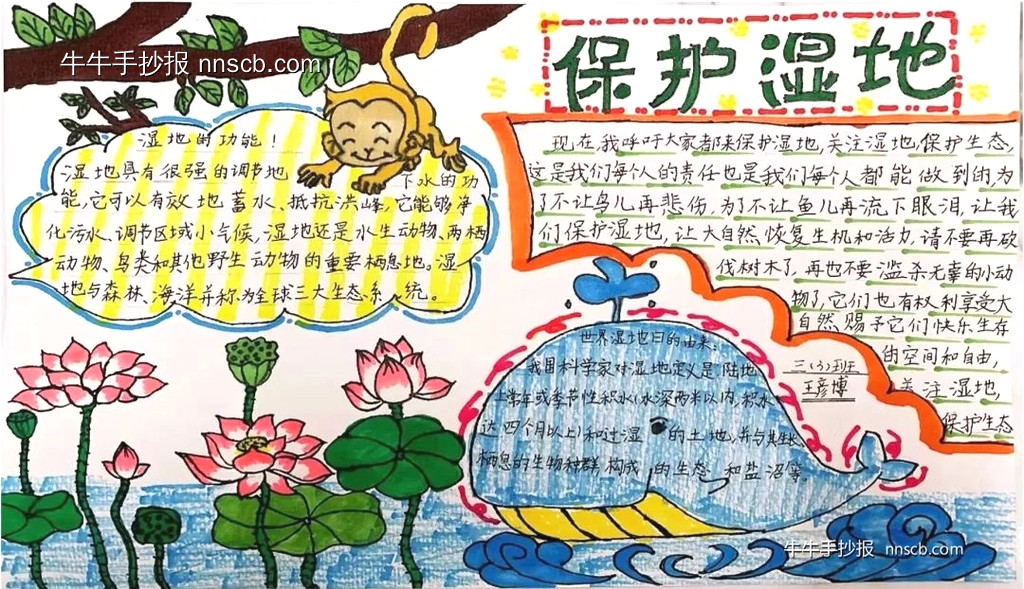 牛牛手抄报 nnscb.com
保护湿地
湿地的功能！
湿地具有很强的调节地下水的功
能,它可以有效地蓄水、抵抗洪峰,它能够净
化污水、调节区域小气候,湿地还是水生动物、两栖
动物、鸟类和其他野生动物的重要栖息地。湿
地与森林、海洋并称为全球三大生态系统。
现在,我呼吁大家都来保护湿地,关注湿地,保护生态,
这是我们每个人的责任也是我们每个人都能做到的,为
了不让鸟儿再悲伤,为了不让鱼儿再流下眼泪,让我
们保护湿地,让大自然恢复生机和活力,请不要再砍
伐树木了,再也不要滥杀无辜的小动
物了,它们也有权利享受大
自然赐予它们快乐生存
的空间和自由,
关注湿地,
保护生态
三(3)班
王彦博
世界湿地日的由来:
我国科学家对湿地定义是"陆地
上常年或季节性积水(水深两米以内,积水
达四个月以上)和过湿的土地,并与其生长、
栖息的生物种群,构成的生态 和盐沼等。
牛牛手抄报 nnscb.com